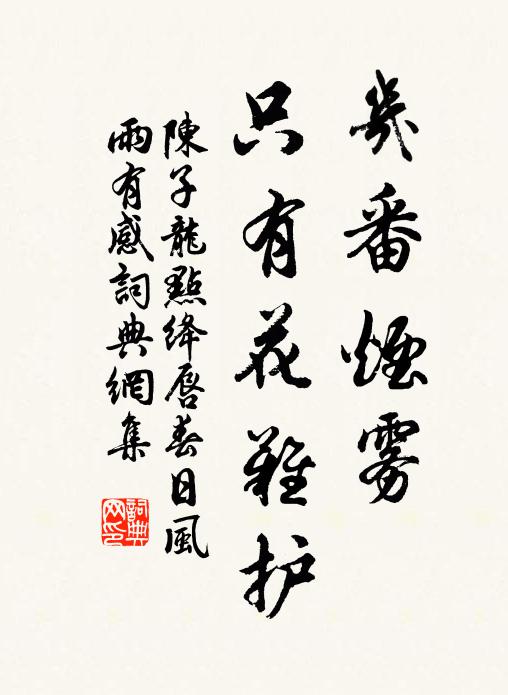 幾番煙雾
只有花難护
陳子龍點絳唇春日風
雨有感詞典網集
詞典
网印